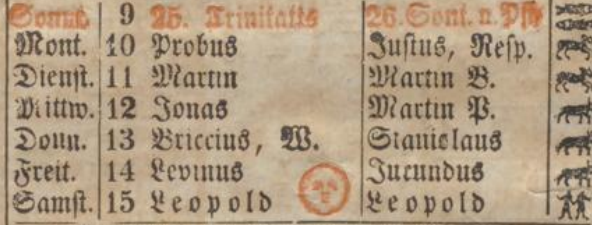 Sonnt. 9 25. Trinitatis 26. Sont. n. Pfi
Mont. 10 Probus Justus, Resp.
Dienst. 11 Martin Martin B.
Mittw. 12 Jonas Martin P.
Donn. 13 Briccius, W. Stanislaus
Freit. 14 Levinus Jucundus
Samst. 15 Leopold Leopold